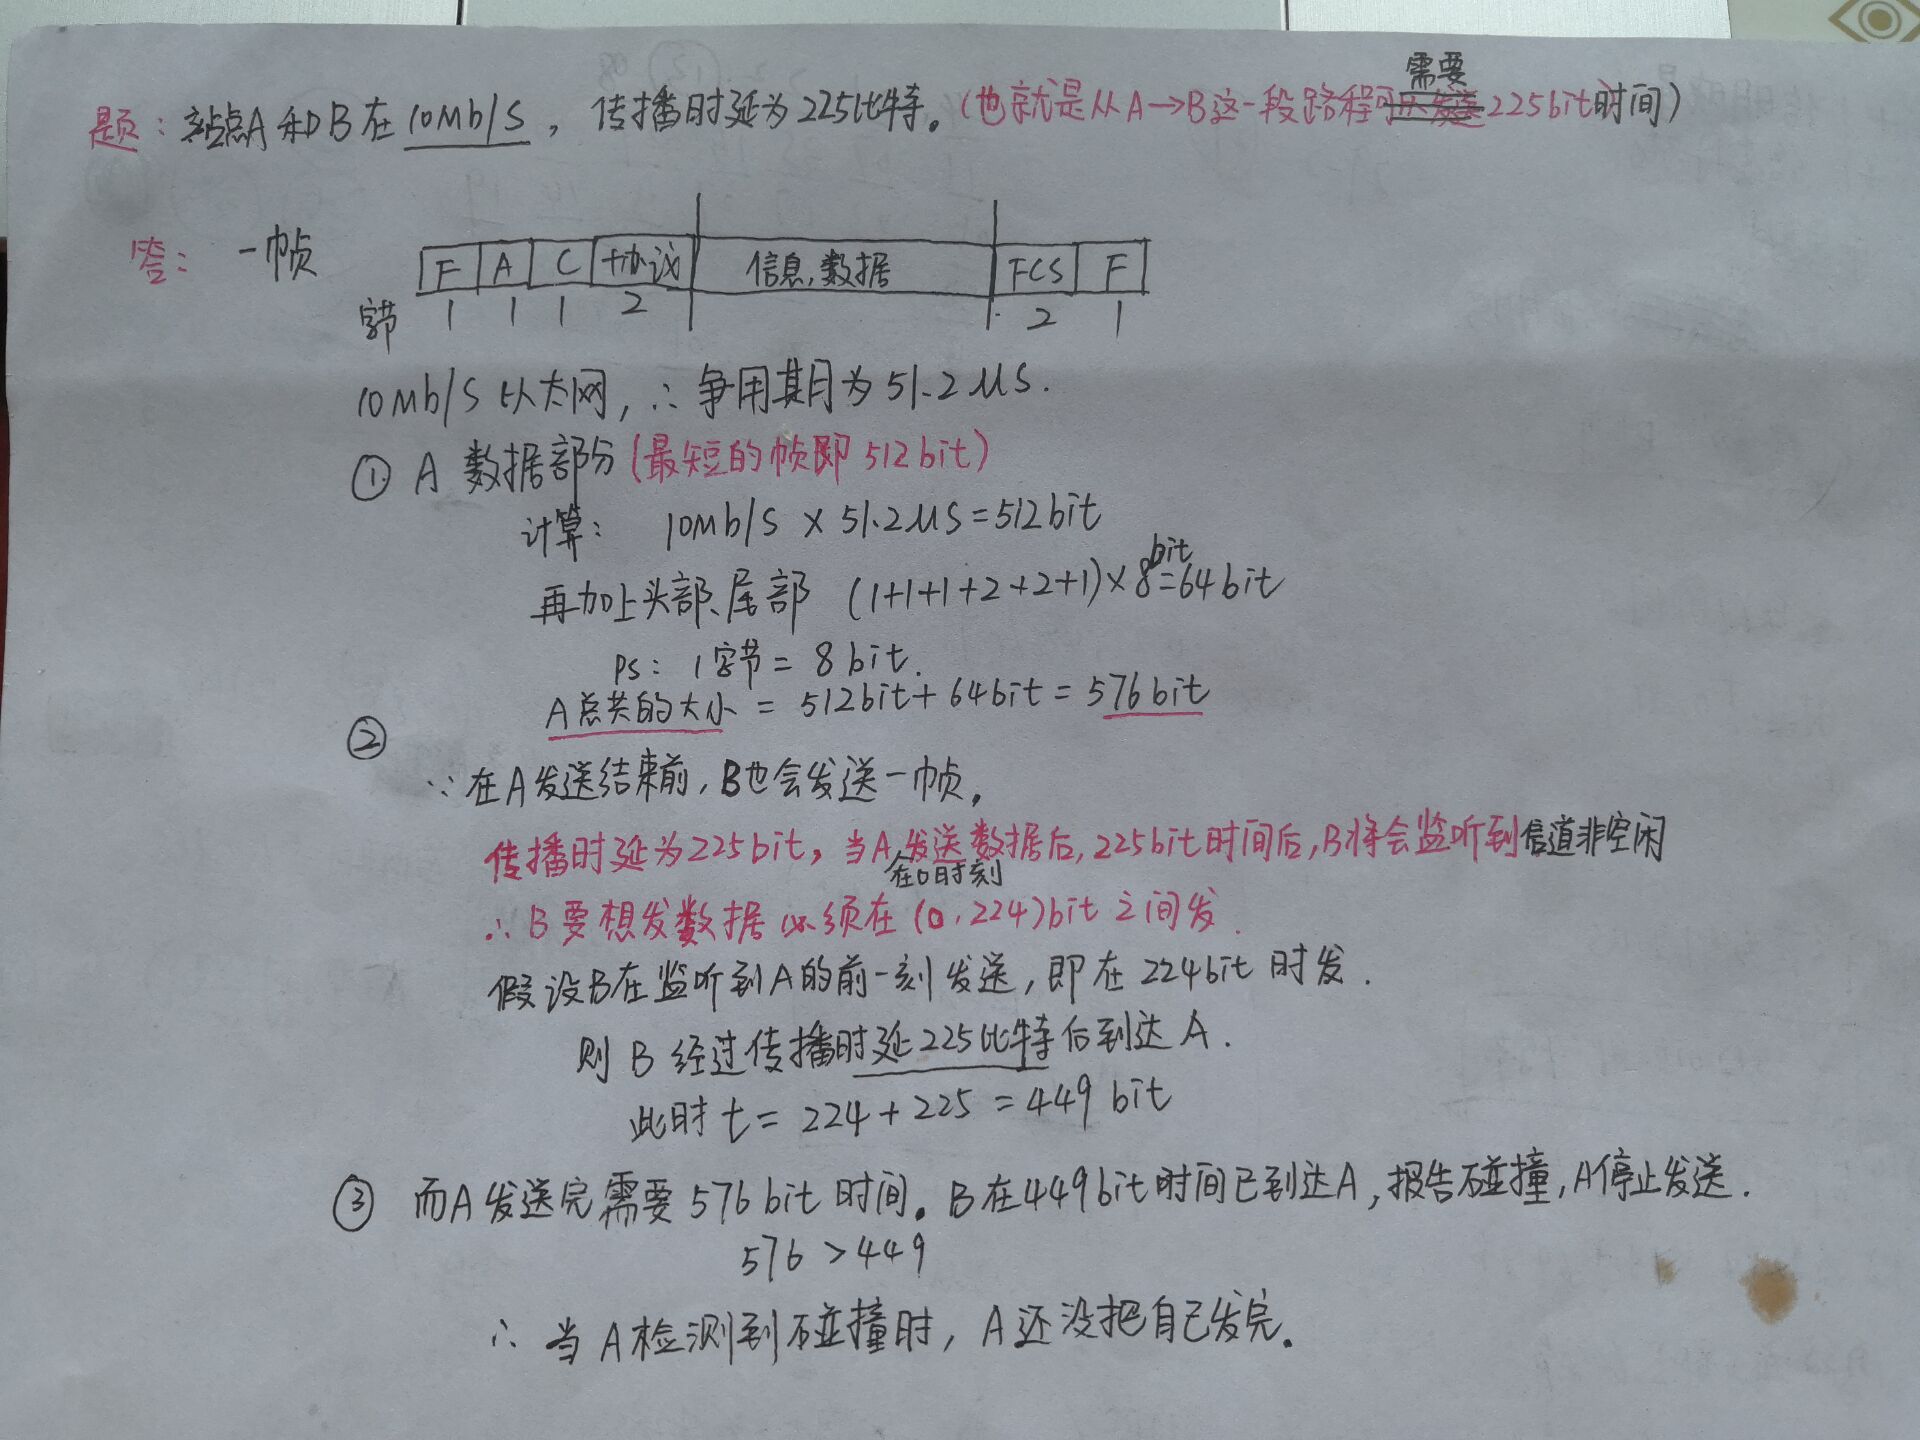 需要
题：站点A和B在10Mb/S，传播时延为225比特。(也就是从A→B这一段路程225bit时间)
答：一帧
F A C 协议 信息,数据 FCS F
字节 1 1 1 2 2 1
10Mb/S以太网，∴争用期为51.2μS.
① A 数据部分(最短的帧即512bit)
计算： 10Mb/S × 51.2μS=512bit
bit
再加上头部、尾部 (1+1+1+2+2+1)×8=64bit
PS：1字节=8bit.
A总共的大小 = 512bit+64bit=576bit
②
∵在A发送结束前，B也会发送一帧，
传播时延为225bit，当A发送数据后,225bit时间后,B将会监听到信道非空闲
在0时刻
∴B要想发数据必须在(0,224)bit之间发.
假设B在监听到A的前一刻发送，即在224bit时发.
则B经过传播时延225比特后到达A.
此时t=224+225=449bit
③ 而A发送完需要576bit时间。B在449bit时间已到达A,报告碰撞,A停止发送.
576>449
∴当A检测到碰撞时，A还没把自己发完。